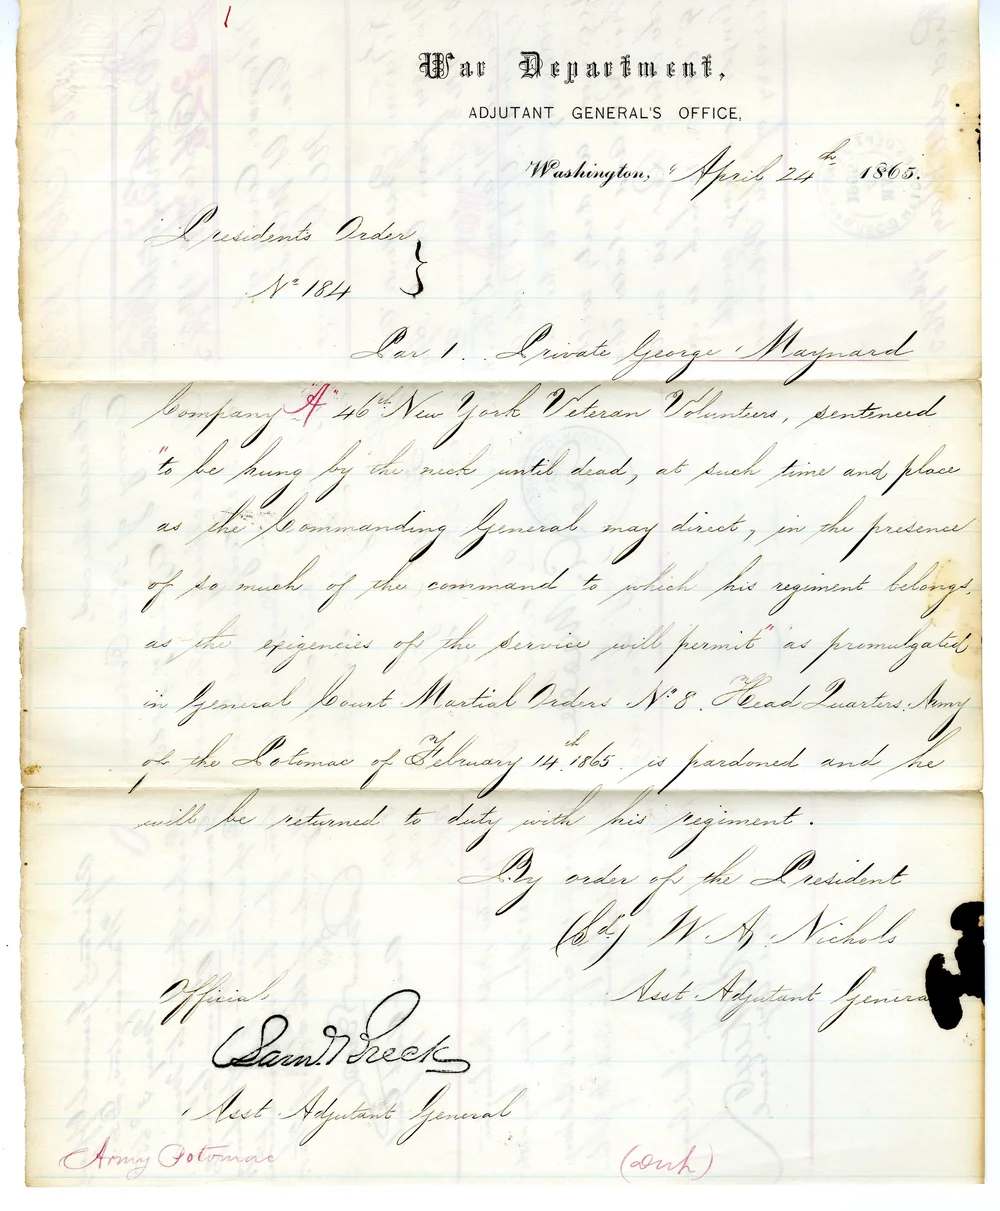 1
War Department,
ADJUTANT GENERAL'S OFFICE,
Washington, April 24th 1865.
Presidents Order
No 184
Par 1. Private George Maynard
Company "A" 46th New York Veteran Volunteers, sentenced
"to be hung by the neck until dead, at such time and place
as the Commanding General may direct, in the presence
of so much of the command to which his regiment belongs,
as the exigencies of the service will permit" as promulgated
in General Court Martial Orders No 8. Head Quarters. Army
of the Potomac of February 14th 1865. is pardoned and he
will be returned to duty with his regiment.
By order of the President
(Sd) W. A. Nichols
Official
Asst Adjutant General
Saml Breck
Asst Adjutant General
Army Potomac